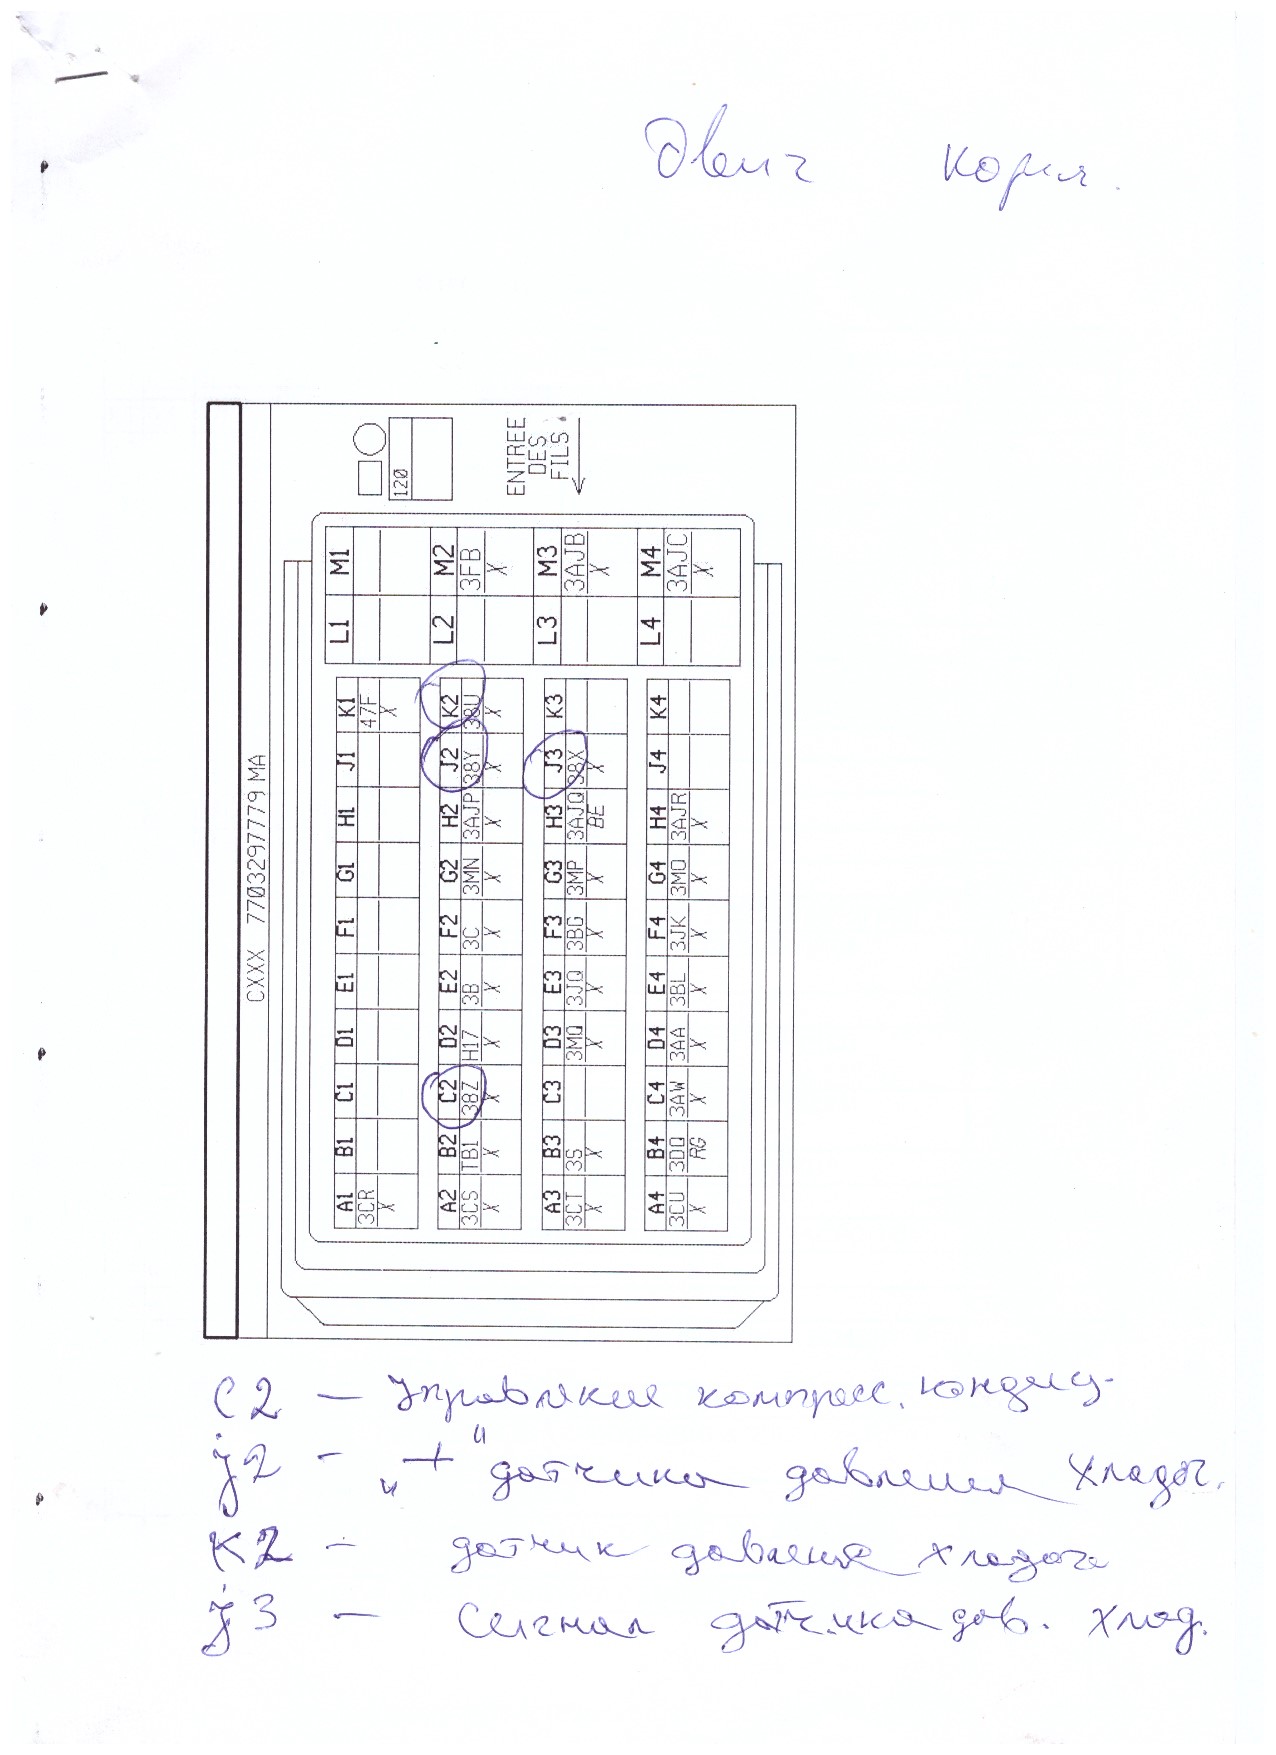 Двиг корич.
CXXX 7703297779 MA
120
ENTREE
DES
FILS
L1 M1
L2 M2
3FB
X
L3 M3
3AJB
X
L4 M4
3AJC
X
A1 B1 C1 D1 E1 F1 G1 H1 J1 K1
3CR 47F
X X
A2 B2 C2 D2 E2 F2 G2 H2 J2 K2
3CS TB1 38Z H17 3B 3C 3MN 3AJP 38Y 38U
X X X X X X X X X X
A3 B3 C3 D3 E3 F3 G3 H3 J3 K3
3CT 3S 3MQ 3JQ 3BG 3MP 3AJQ 38X
X X X X X X BE X
A4 B4 C4 D4 E4 F4 G4 H4 J4 K4
3CU 3DQ 3AW 3AA 3BL 3JK 3MO 3AJR
X RG X X X X X X
C2 — Управление компресс. кондиц-
j2 - „+“ датчика давления хладог.
K2 - датчик давления хладога
j3 — Сигнал датчика дав. хлад.